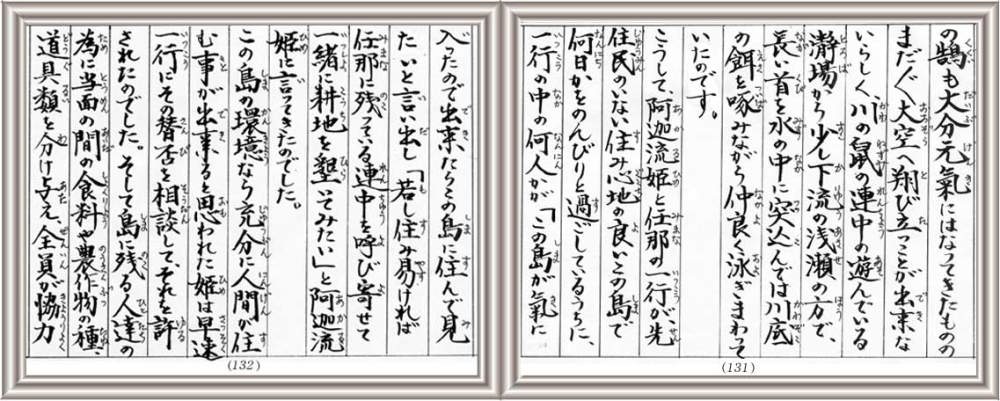 の鵠も大分元氣にはなってきたものの
まだ〱大空へ翔び立つことが出来な
いらしく、川の鼠の連中の遊んでいる
瀞場から少し下流の浅瀬の方で、
長い首を水の中に突込んでは川底
の餌を啄みながら仲良く泳ぎまわって
いたのです。
こうして、阿迦流姫と任那の一行が先
住民のいない住み心地の良いこの島で
何日かをのんびりと過ごしているうちに、
一行の中の何人かが「この島が氣に
(131)
入ったので出来たらこの島に住んで見
たいと言い出し「若し住み易ければ
任那に残っている連中を呼び寄せて
一緒に耕地を墾いてみたい」と阿迦流
姫に言ってきたのでした。
この島の環境なら充分に人間が住
む事が出来ると思われた姫は早速
一行にその賛否を相談して、それを許
されたのでした。そして島に残る人達の
為に当面の間の食料や農作物の種、
道具類を分け与え、全員が協力
(132)